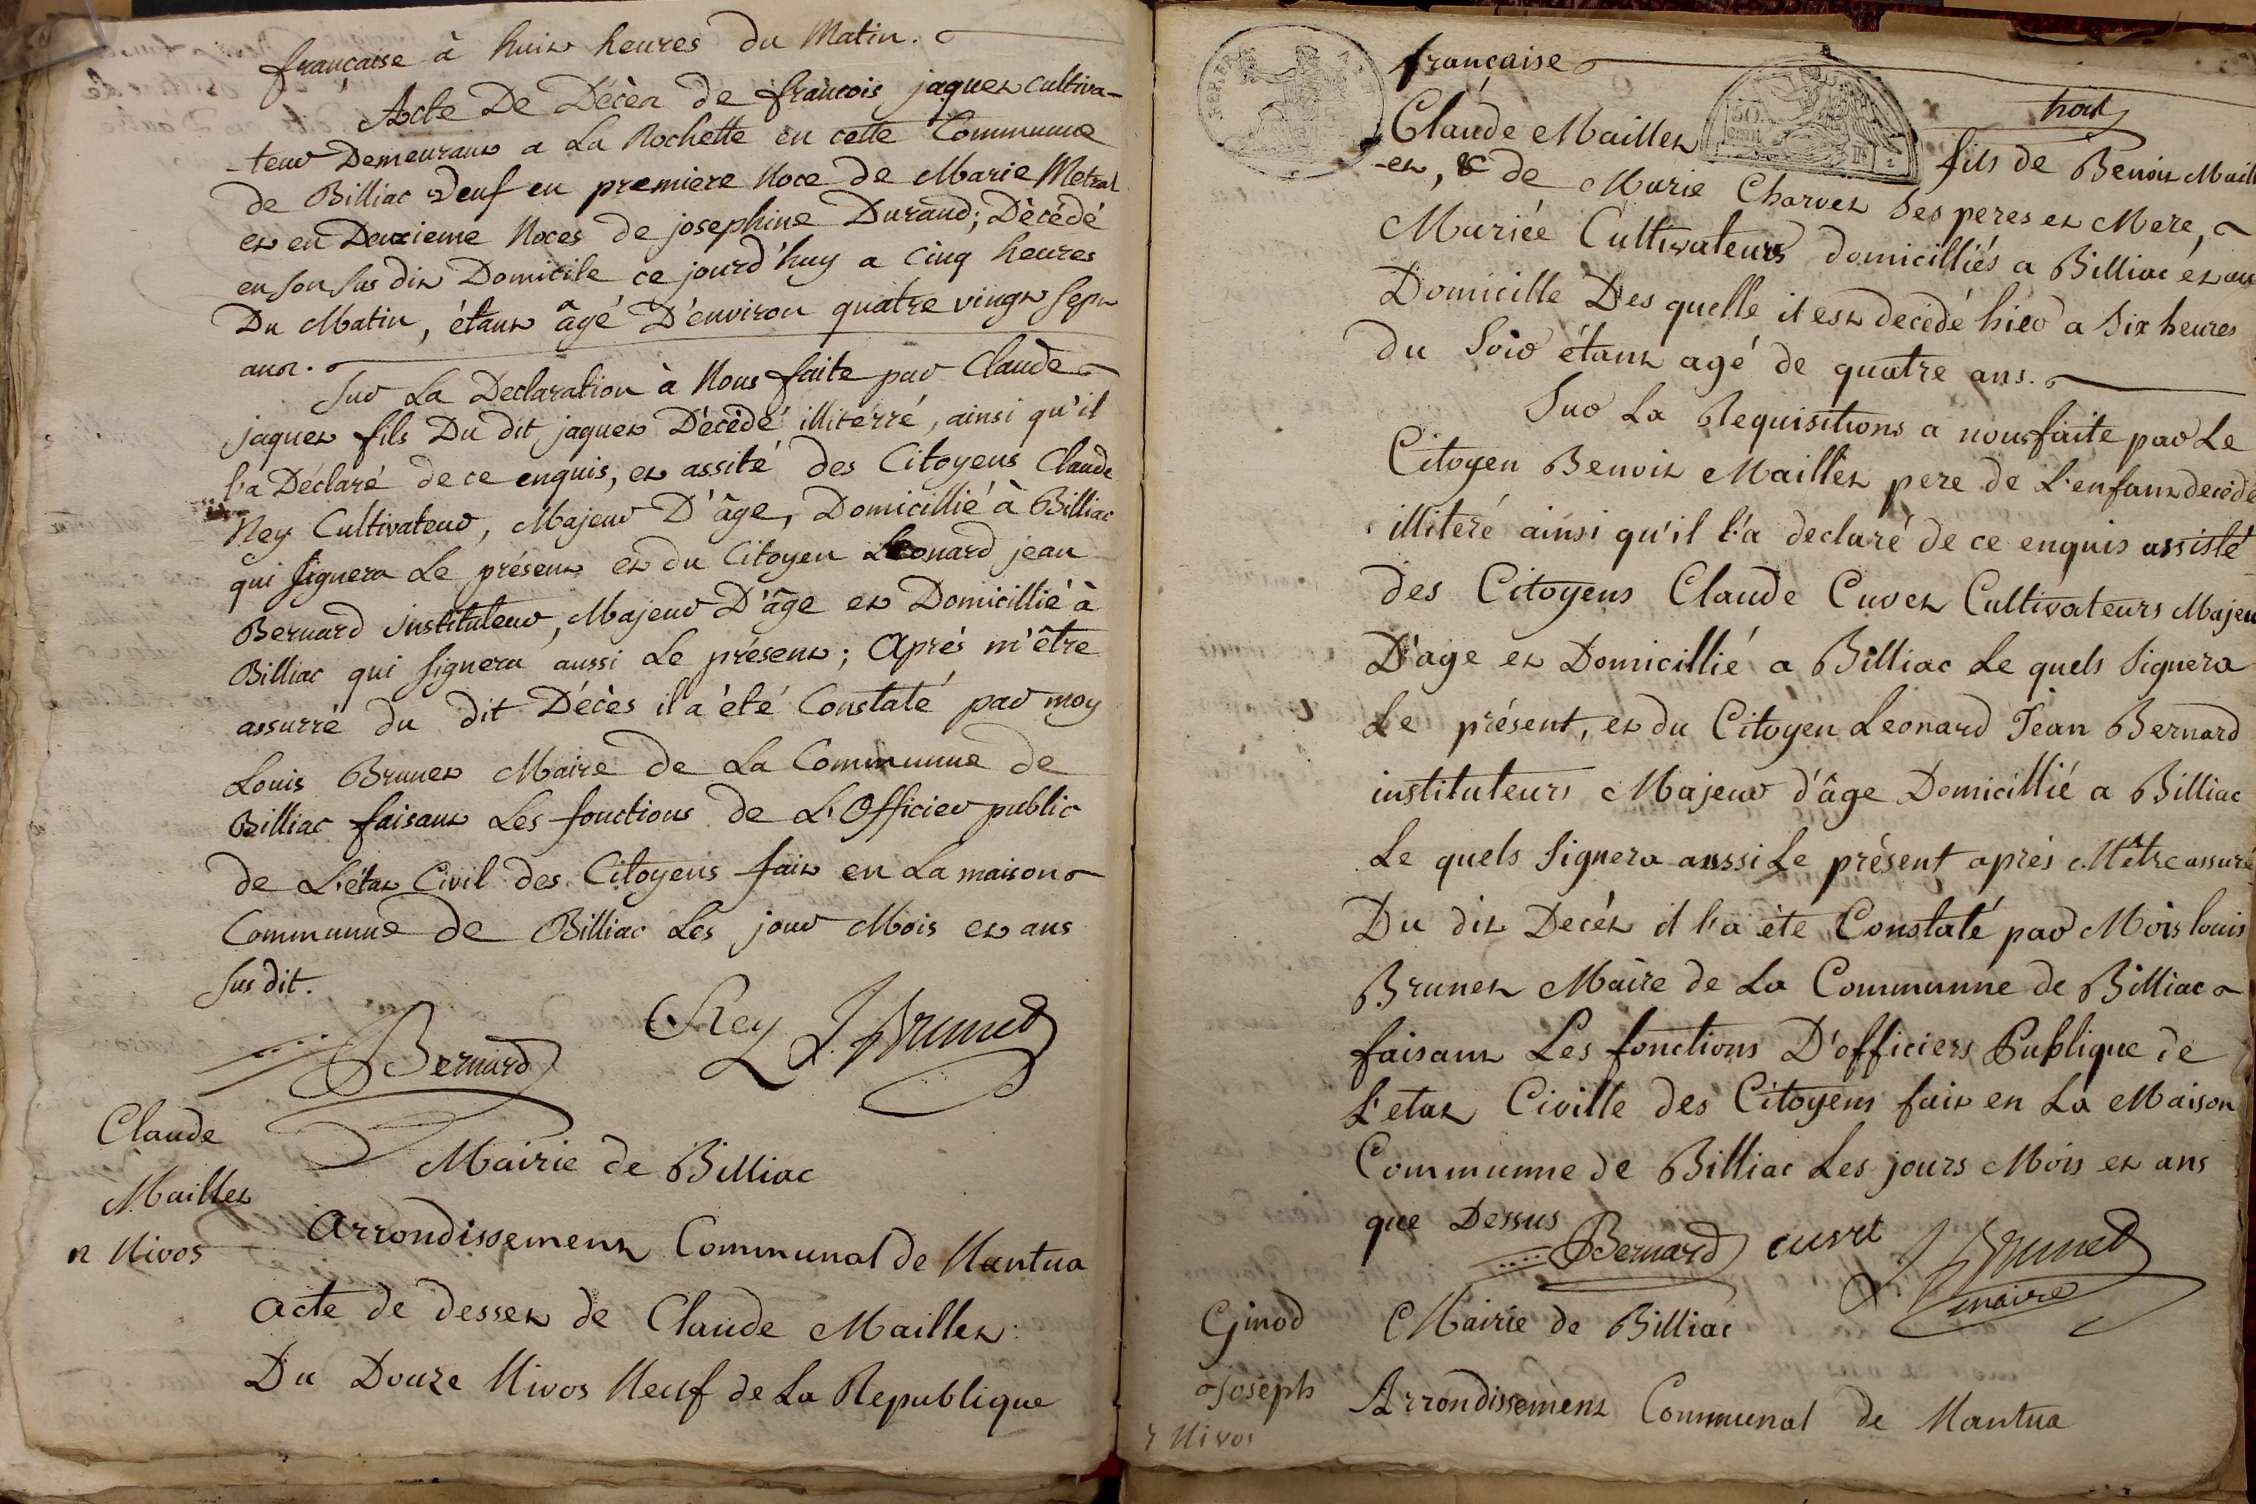 française à huit heures du Matin.
Acte De Décès de françois jaquet cultiva-
-teur Demeurant a La Rochette en cette Commune
de Billiac Veuf en premiere Noce de Marie Metral
et en Deuxieme Noces de josephine Durand; Dècédé
en son sus dit Domicile ce jourd'huy a Cinq heures
Du Matin, étant âgé D'environ quatre vingt sept
ans.
Sur La Declaration à Nous faite par Claude
jaquet fils Du dit jaquet Décédé illiterré, ainsi qu'il
l'a Déclaré de ce enquis, et assité des Citoyens Claude
Rey Cultivateur, Majeur D'âge, Domicillié à Billiac
qui signera Le présent et du Citoyen Leonard jean
Bernard instituteur, Majeur D'âge et Domicillié à
Billiac qui signera aussi Le présent; Après m'être
assurré du dit Décès il a été Constaté par moy
Louis Brunet Maire de La Commune de
Billiac faisant Les fonctions de L'Officier public
de L'état Civil des Citoyens fait en La maison
Commune de Billiac Les jour Mois et ans
susdit.
Bernard CRey L. Brunet
Claude
Maillet
12 Nivos
Mairie de Billiac
Arrondissement Communal de Nantua
acte de desset de Claude Maillet.
Du Douze Nivos Neuf de La Republique
française
50
cent
Claude Maillet fils de Benoit Maill
-et, & de Marie Charvet Ses peres et Mere,
Mariéé Cultivateurs domicilliés a Billiac et au
Domicille Des quelle il est decédé hier a Six heures
du Soir étant agé de quatre ans.
Sur La Requisitions a nous faite par Le
Citoyen Benoit Maillet pere de L'enfant decédé
illiteré ainsi qu'il l'a declaré de ce enquis assisté
des Citoyens Claude Cuvet Cultivateurs Majeu
D'age et Domicillié a Billiac Le quels Signera
Le présent, et du Citoyen Leonard Jean Bernard
instituteurs Majeur d'âge Domicillié a Billiac
Le quels Signera aussi Le présent après M'être assuré
Du dit Decét il l'a été Constaté par Mois louis
Brunet Maire de La Communne de Billiac
faisant Les fonctions D'officiers Publique de
L'etat Civille des Citoyens fait en La Maison
Communne de Billiac Les jours Mois et ans
que Dessus
Bernard cuvet L. Brunet
maire
Ginod
Joseph
7 Nivos
Mairie de Billiac
Arrondissement Communal de Nantua